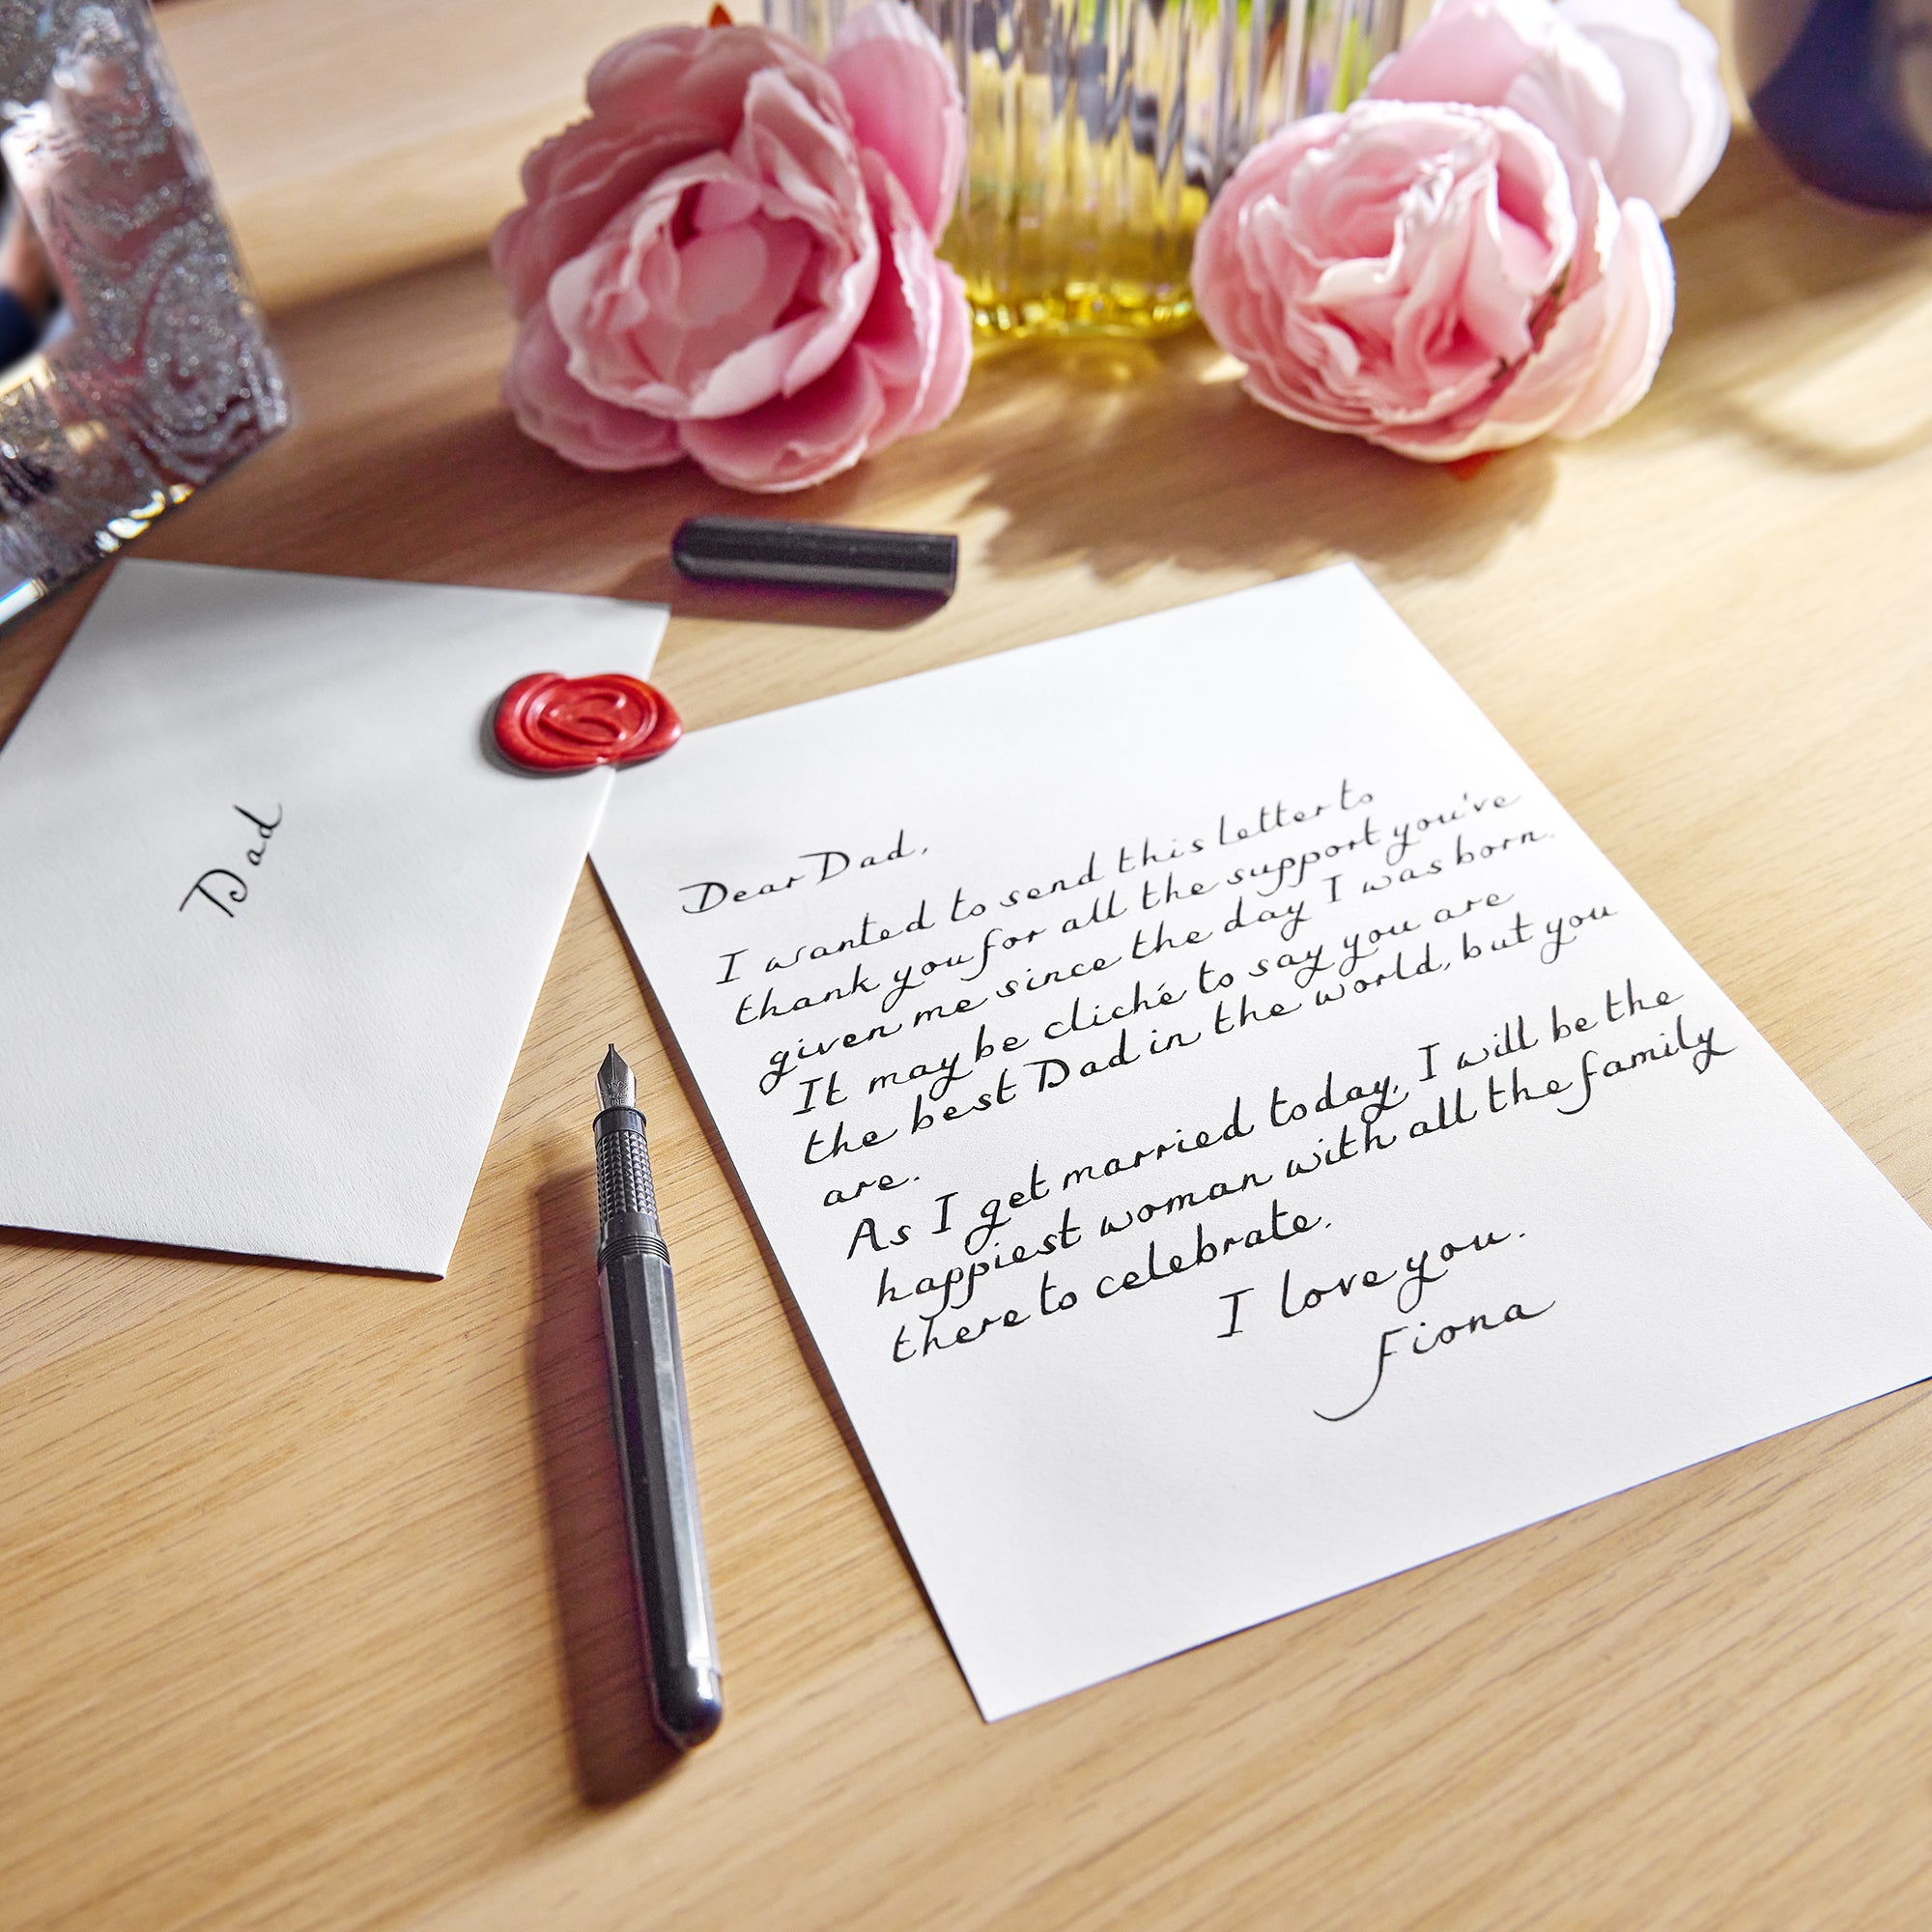 Dad
Dear Dad,
I wanted to send this letter to
thank you for all the support you've
given me since the day I was born.
It may be cliché to say you are
the best Dad in the world, but you
are.
As I get married today, I will be the
happiest woman with all the family
there to celebrate.
I love you.
Fiona